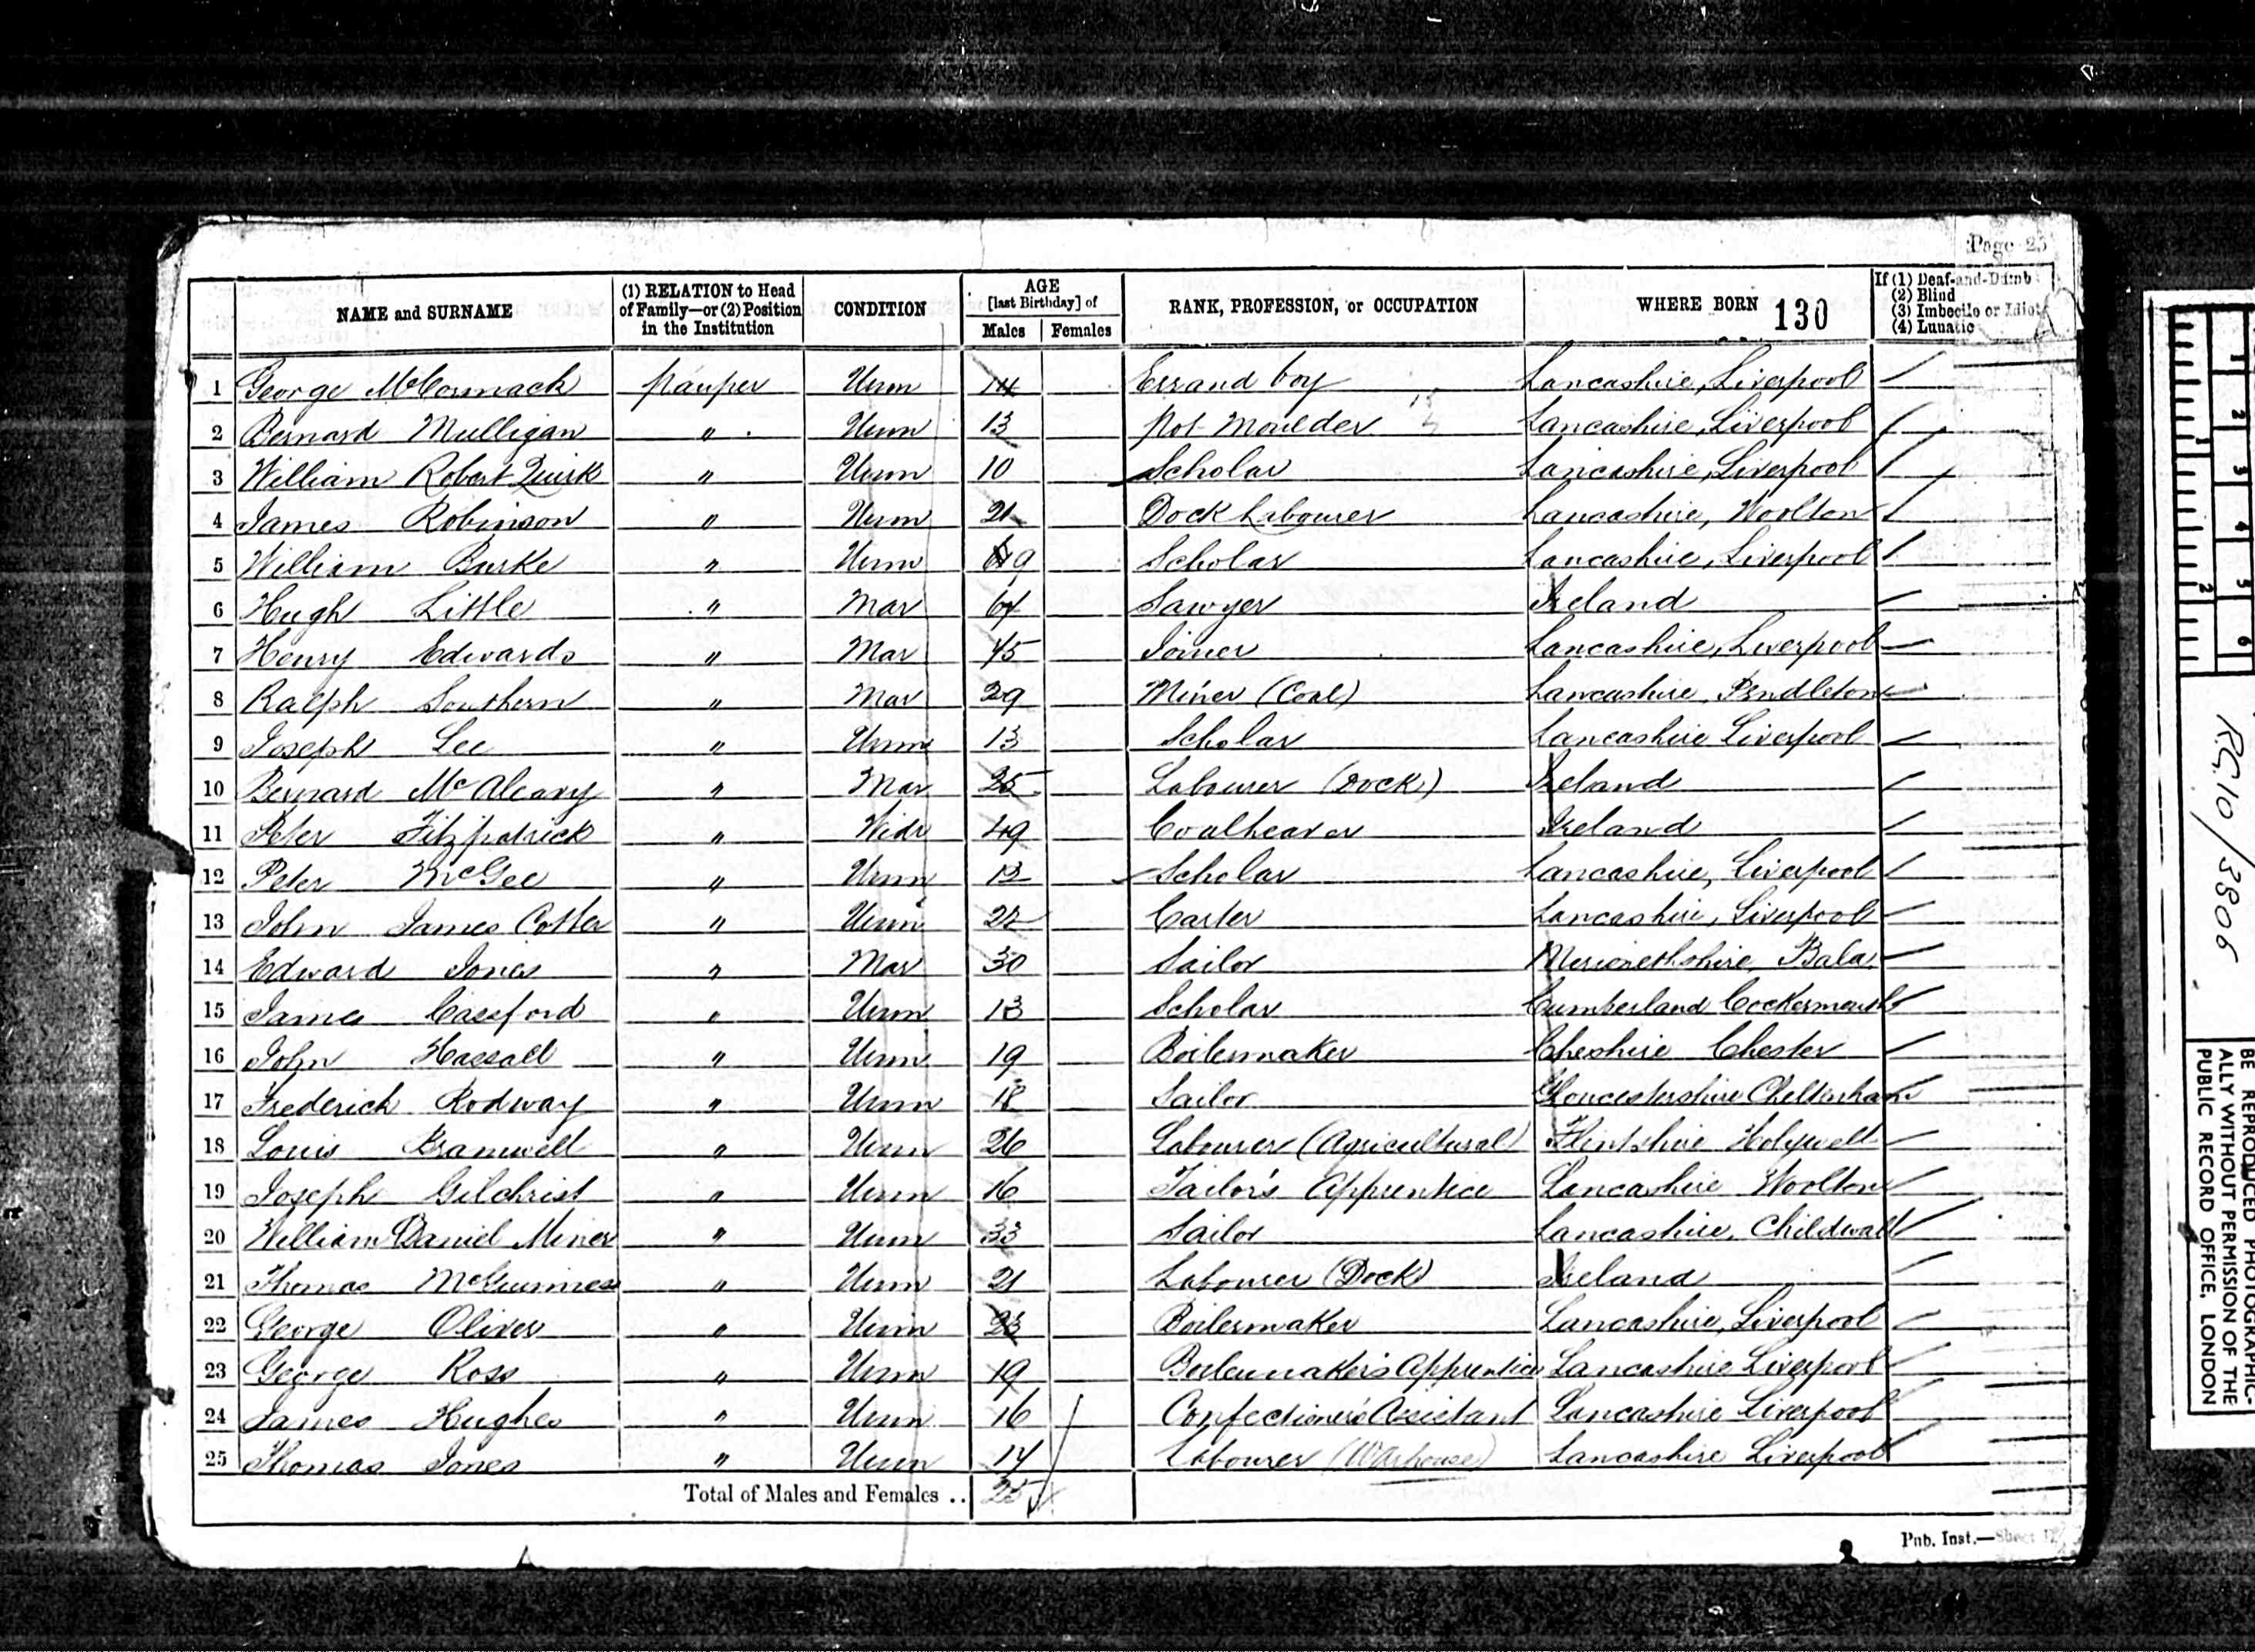 Page 25
NAME and SURNAME (1) RELATION to Head of Family—or (2) Position in the Institution CONDITION AGE [last Birthday] of Males Females RANK, PROFESSION, or OCCUPATION WHERE BORN 130 If (1) Deaf-and-Dumb (2) Blind (3) Imbecile or Idiot (4) Lunatic
1 George McCormack pauper Unm 14 Errand boy Lancashire, Liverpool
2 Bernard Mulligan " Unm 13 Pot Moulder Lancashire, Liverpool
3 William Robert Quirk " Unm 10 Scholar Lancashire, Liverpool
4 James Robinson " Unm 21 Dock Labourer Lancashire, Woolton
5 William Burke " Unm 9 Scholar Lancashire, Liverpool
6 Hugh Little " Mar 64 Sawyer Ireland
7 Henry Edwards " Mar 45 Joiner Lancashire, Liverpool
8 Ralph Southern " Mar 29 Miner (Coal) Lancashire, Pendleton
9 Joseph Lee " Unm 13 Scholar Lancashire Liverpool
10 Bernard McAleavy " Mar 25 Labourer (Dock) Ireland
11 Peter Fitzpatrick " Widr 49 Coalheaver Ireland
12 Peter McGee " Unm 12 Scholar Lancashire, Liverpool
13 John James Cotter " Unm 22 Carter Lancashire, Liverpool
14 Edward Jones " Mar 30 Sailor Merionethshire Bala
15 James Cassford " Unm 13 Scholar Cumberland Cockermouth
16 John Hassall " Unm 19 Boilermaker Cheshire Chester
17 Frederick Rodway " Unm 18 Sailor Gloucestershire Cheltenham
18 Louis Bramwell " Unm 26 Labourer (Agricultural) Flintshire Holywell
19 Joseph Gilchrist " Unm 16 Tailor's Apprentice Lancashire Woolton
20 William Daniel Miner " Unm 33 Sailor Lancashire, Childwall
21 Thomas McGuinness " Unm 21 Labourer (Dock) Ireland
22 George Oliver " Unm 23 Boilermaker Lancashire, Liverpool
23 George Ross " Unm 19 Boilermaker's Apprentice Lancashire Liverpool
24 James Hughes " Unm 16 Confectioner's Assistant Lancashire Liverpool
25 Thomas Jones " Unm 14 Labourer (Warhouse) Lancashire Liverpool
Total of Males and Females .. 25
Pub. Inst.—Sheet
RG.10/3806
BE REPRODUCED PHOTOGRAPHIC-
ALLY WITHOUT PERMISSION OF THE
PUBLIC RECORD OFFICE, LONDON